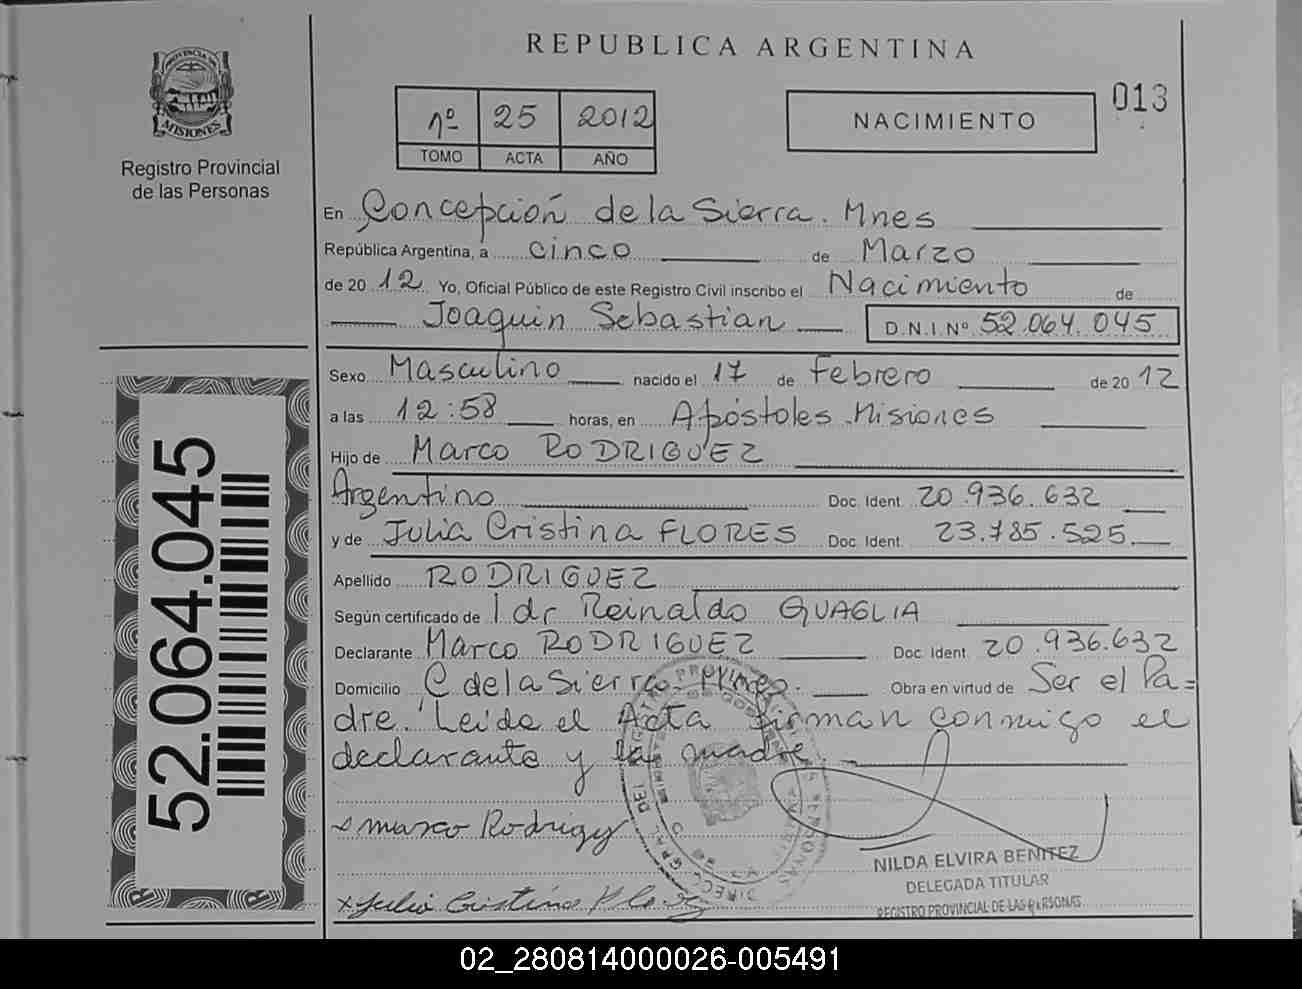 REPUBLICA ARGENTINA
PROVINCIA DE
MISIONES
Registro Provincial
de las Personas
013
nº 25 2012
TOMO ACTA AÑO
NACIMIENTO
En Concepción de la Sierra. Mnes
República Argentina, a cinco de Marzo
de 2012 Yo, Oficial Público de este Registro Civil inscribo el Nacimiento de
Joaquin Sebastian D.N.I.Nº 52.064.045
Sexo Masculino nacido el 17 de Febrero de 2012
a las 12:58 horas, en Apóstoles Misiones
Hijo de Marco RODRIGUEZ
Argentino Doc. Ident. 20.936.632
y de Julia Cristina FLORES Doc. Ident. 23.785.525.
Apellido RODRIGUEZ
Según certificado de l dr Reinaldo QUAGLIA
Declarante Marco RODRIGUEZ Doc. Ident. 20.936.632
Domicilio C de la Sierra. Mnes. Obra en virtud de Ser el Pa=
dre. Leida el Acta firman conmigo el
declarante y la madre.
marco Rodrigz
x Julia Cristina
NILDA ELVIRA BENITEZ
DELEGADA TITULAR
REGISTRO PROVINCIAL DE LAS PERSONAS
52.064.045
02_280814000026-005491